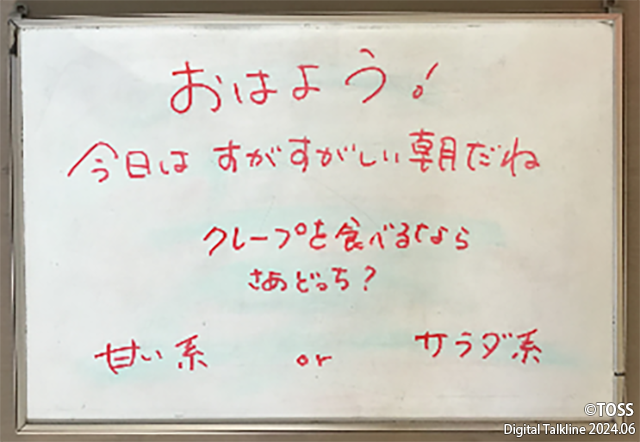 おはよう!
今日は すがすがしい朝だね
クレープを食べるなら
さあどっち?
甘い系 or サラダ系
©TOSS
Digital Talkline 2024.06